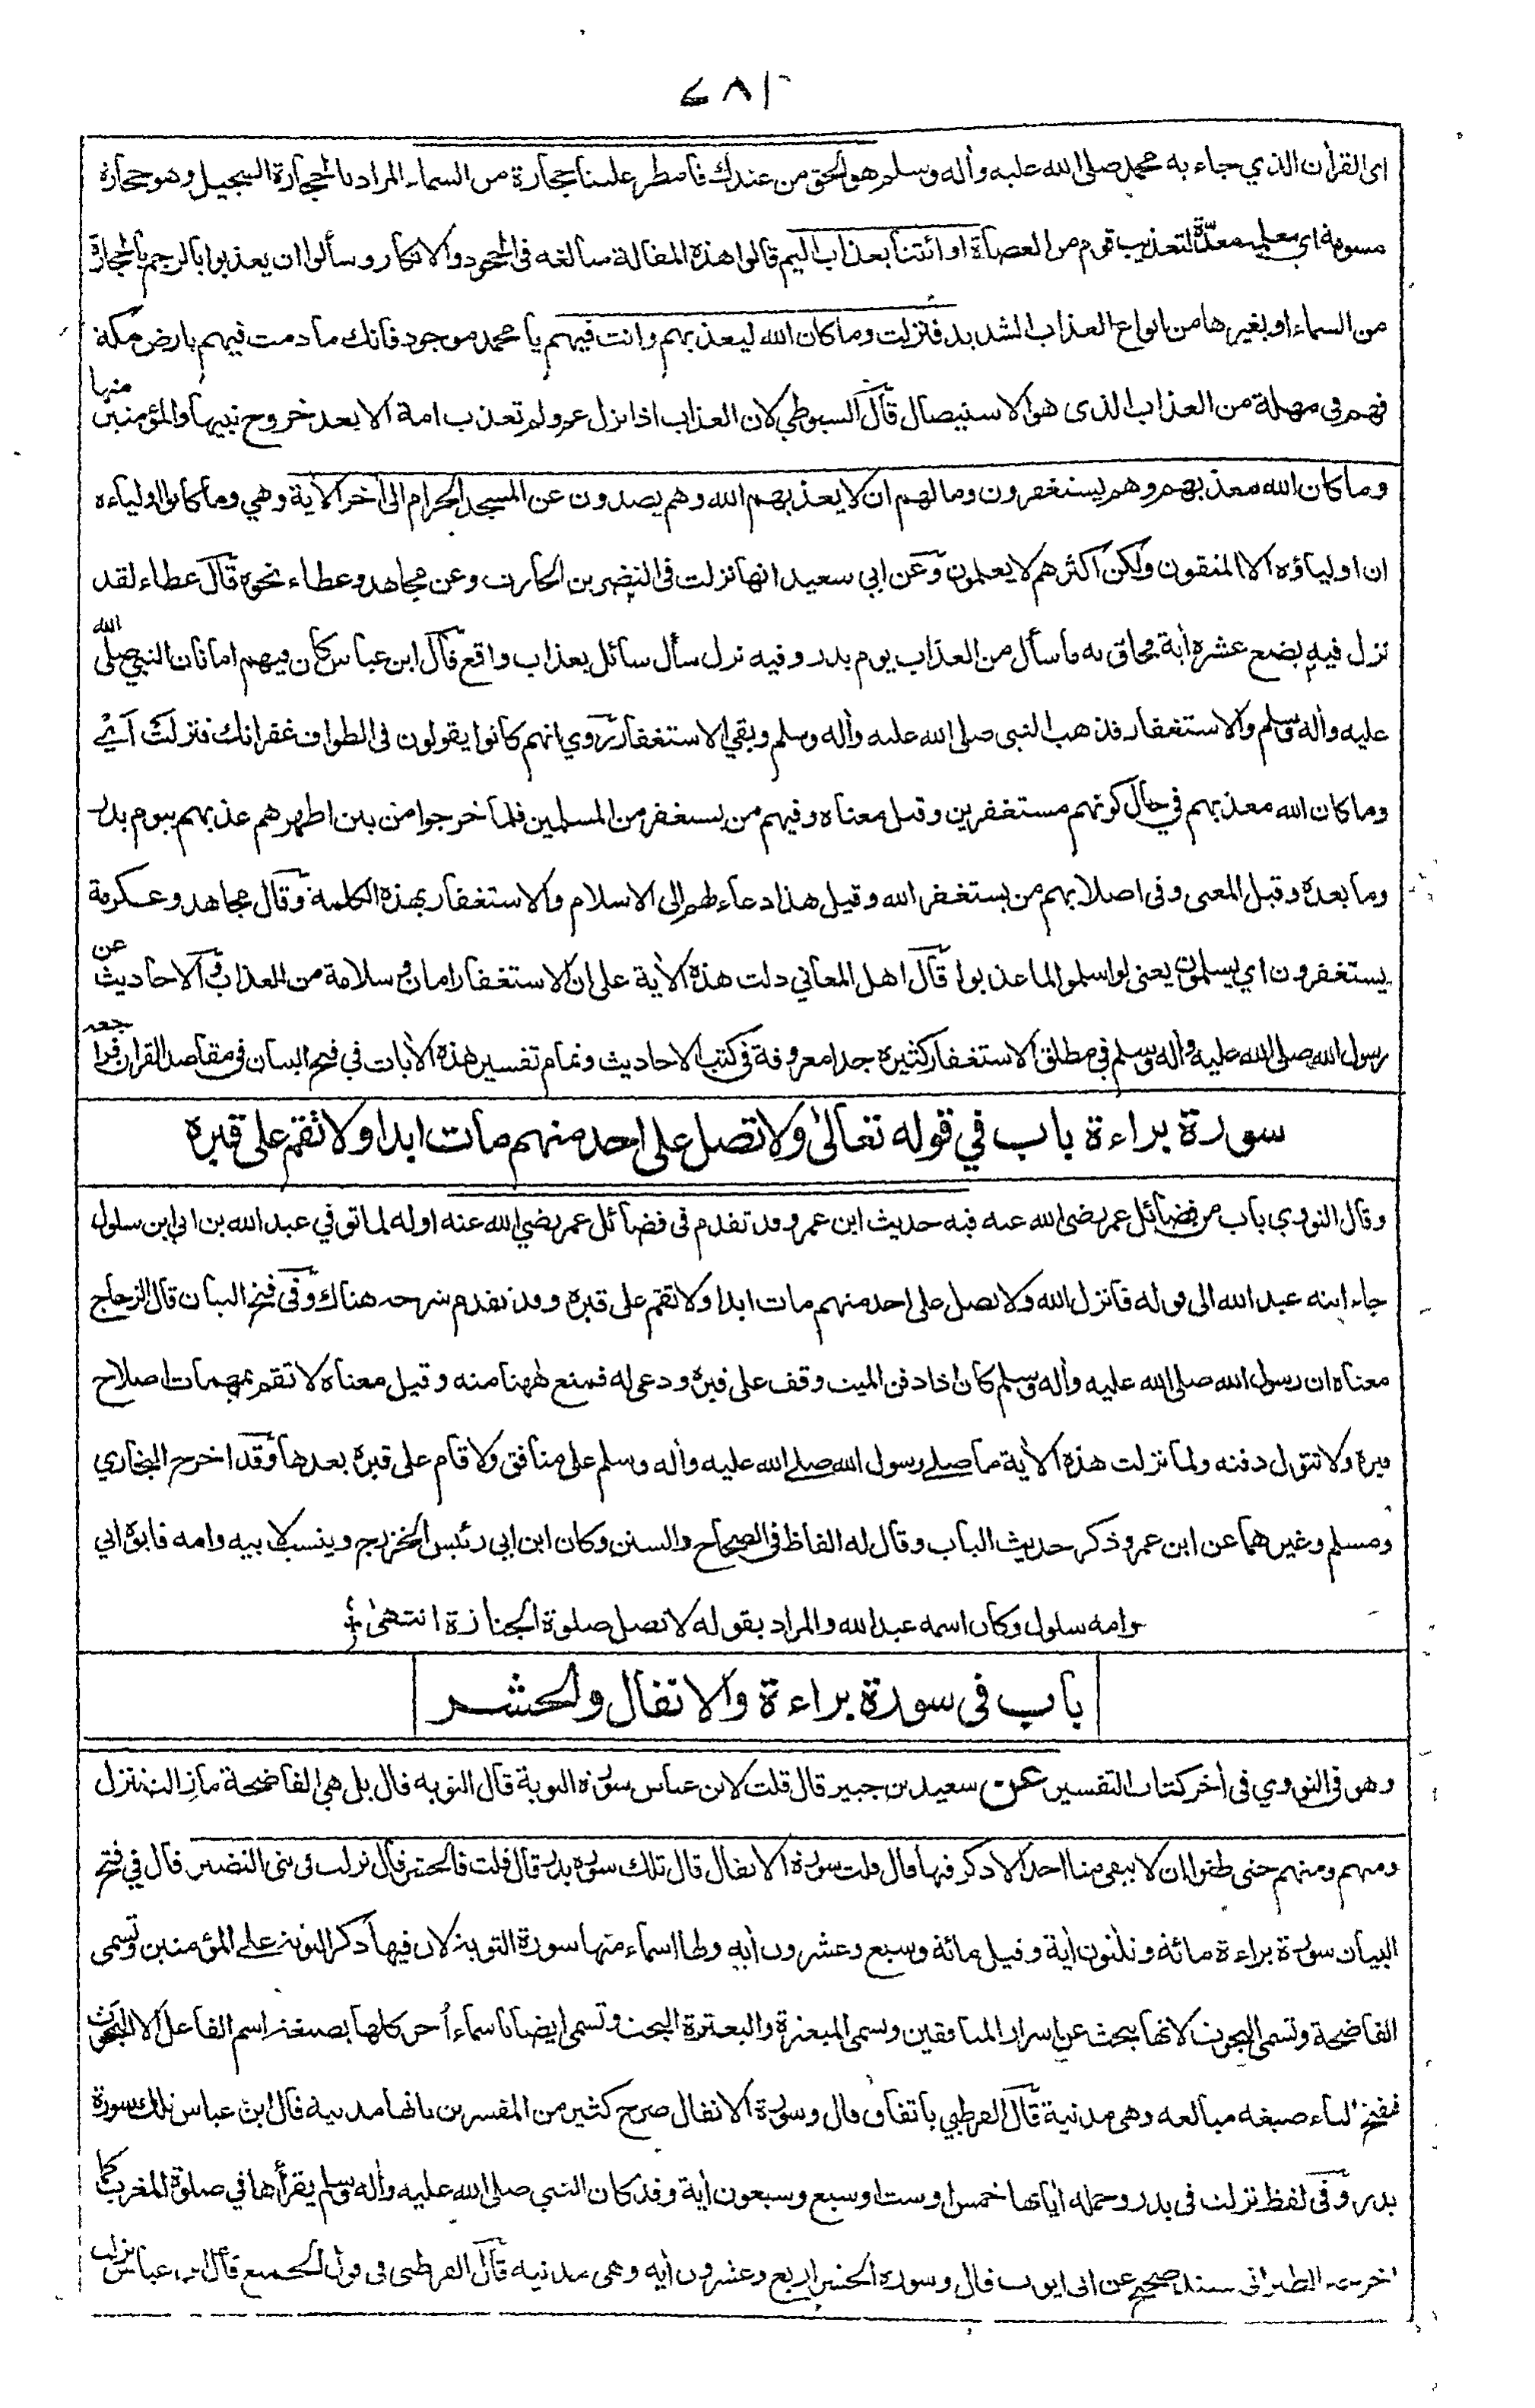 ٧٨٢
اى القرأن الذي جاء به محمد صلى الله عليه وأله وسلم هو الحق من عندك فامطر علينا حجارة من السماء المراد بالحجارة السجيل وهو حجارة
مسومة اى معلمة معدّة لتعذيب قوم من العصاة او ائتنا بعذاب اليم قالوا هذه المقالة مبالغة فى الجحود والانكار وسألوا ان يعذبوا بالرجم بالحجارة
من السماء او بغيرها من انواع العذاب الشديد فنزلت وما كان الله ليعذبهم وانت فيهم يا محمد موجود فانك ما دمت فيهم بارض مكة
فهم في مهلة من العذاب الذى هو الاستيصال قال السيوطي لان العذاب اذا نزل عم ولم تعذب امة الا بعد خروج نبيها والمؤمنين منها
وما كان الله معذبهم وهم يستغفرون وما لهم ان لا يعذبهم الله وهم يصدون عن المسجد الحرام الى أخر الاية وهي وما كانوا اولياءه
ان اولياؤه الا المتقون ولكن اكثرهم لا يعلمون وعن ابي سعيد انها نزلت فى النضر بن الحارث وعن مجاهد وعطاء نحوه قال عطاء لقد
نزل فيه بضع عشرة أية فحاق به ما سأل من العذاب يوم بدر وفيه نزل سأل سائل بعذاب واقع قال ابن عباس كان فيهم امانان النبي صلى الله
عليه وأله وسلم والاستغفار فذهب النبي صلى الله عليه وأله وسلم وبقي الاستغفار وروي انهم كانوا يقولون فى الطواف غفرانك فنزلت أي
وما كان الله معذبهم في حال كونهم مستغفرين وقيل معناه وفيهم من يستغفر من المسلمين فلما خرجوا من بين اظهرهم عذبهم بيوم بدر
وما بعده وقيل المعنى وفى اصلابهم من يستغفر الله وقيل هذا دعاء لهم الى الاسلام والاستغفار بهذه الكلمة وقال مجاهد وعكرمة
يستغفرون اي يسلمون يعنى لو اسلموا لما عذبوا قال اهل المعاني دلت هذه الأية على ان الاستغفار امان وسلامة من العذاب وفى الاحاديث عن
رسول الله صلى الله عليه وأله وسلم في مطلق الاستغفار كثيرة جدا معروفة في كتب الاحاديث وتمام تفسير هذه الأيات في فتح البيان في مقاصد القرأن فراجعه
سورة براءة باب في قوله تعالىٰ ولا تصل على احد منهم مات ابدا ولا تقم على قبره
وقال النووي باب من فضائل عمر رضى الله عنه فيه حديث ابن عمر وقد تقدم فى فضائل عمر رضي الله عنه اوله لما توفي عبد الله بن ابى ابن سلول
جاء ابنه عبد الله الى قوله فانزل الله ولا تصل على احد منهم مات ابدا ولا تقم على قبره وقد تقدم شرحه هناك وفى فتح البيان قال الزجاج
معناه ان رسول الله صلى الله عليه وأله وسلم كان اذا دفن الميت وقف على قبره ودعى له فمنع ههنا منه وقيل معناه لا تقم بمهمات اصلاح
قبره ولا تتول دفنه ولما نزلت هذه الأية ما صلے رسول الله صلے الله عليه وأله وسلم على منافق ولا قام على قبره بعدها وقد اخرج البخاري
ومسلم وغيرهما عن ابن عمر وذكر حديث الباب وقال له الفاظ فى الصحاح والسنن وكان ابن ابي رئيس الخزرج وينسب لابيه وامه فابوه ابي
وامه سلول وكان اسمه عبد الله والمراد بقوله لا تصل صلوة الجنازة انتهىٰ
باب فى سورة براءة والانفال والحشر
وهو فى النووي فى أخر كتاب التفسير عن سعيد بن جبير قال قلت لابن عباس سورة التوبة قال التوبة قال بل هي الفاضحة ما زالت تنزل
ومنهم ومنهم حتى ظنوا ان لا يبقى منا احد الا ذكر فيها قال قلت سورة الانفال قال تلك سورة بدر قال قلت فالحشر قال نزلت فى بنى النضير قال في فتح
البيان سورة براءة مائة وثلثون أية وقيل مائة وسبع وعشرون أية ولها اسماء منها سورة التوبة لان فيها ذكر التوبة على المؤمنين وتسمى
الفاضحة وتسمى البحوث لانها تبحث عن اسرار المنافقين وتسمى المبعثرة والبعثرة البحث وتسمى ايضا باسماء أخر كلها بصيغة اسم الفاعل الا البحوث
بفتح الباء صيغة مبالغة وهى مدنية قال القرطبي باتفاق قال وسورة الانفال صرح كثير من المفسرين بانها مدنية قال ابن عباس تلك سورة
بدر وفى لفظ نزلت فى بدر وجملة أياتها خمس او ست او سبع وسبعون أية وقد كان النبي صلى الله عليه وأله وسلم يقرأها في صلوة المغرب كما
اخرجه الطبرانى بسند صحيح عن ابى ايوب قال وسورة الحشر اربع وعشرون أية وهى مدنية قال القرطبى فى قول الجميع قال ابن عباس نزلت